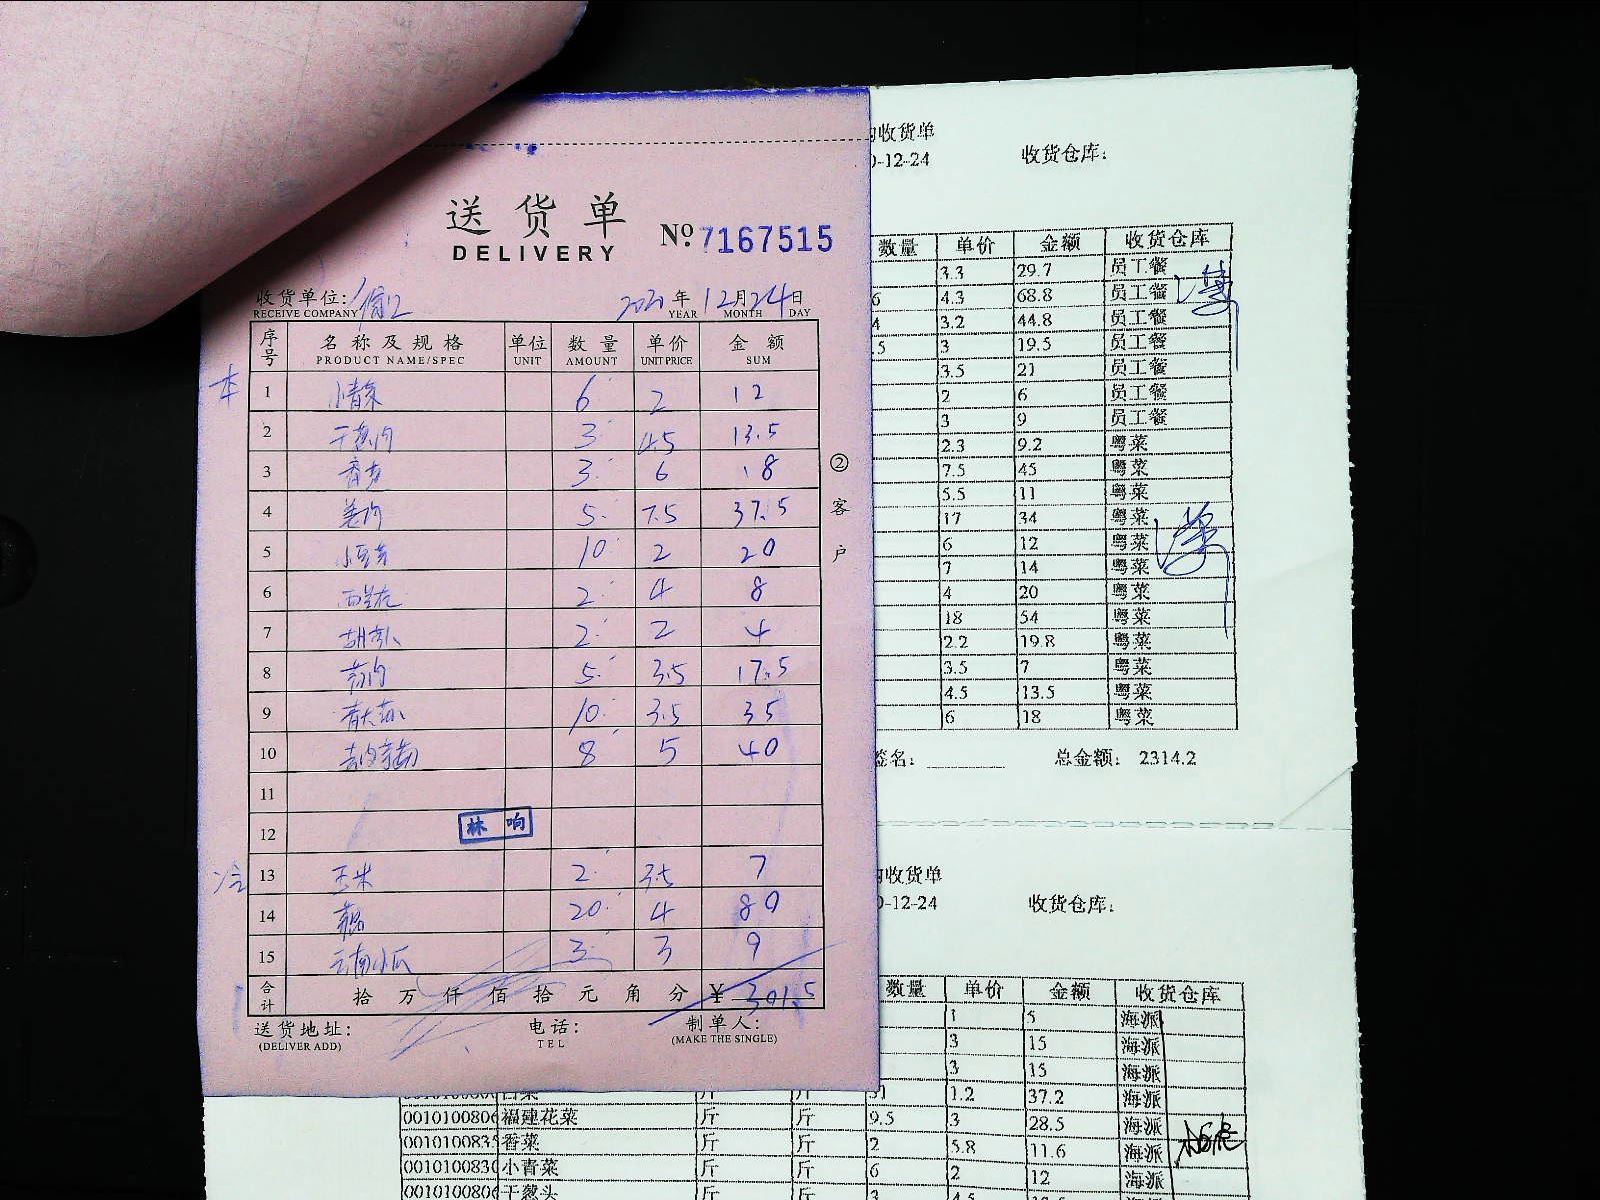 送货单
DELIVERY
№ 7167515
收货单位:
RECEIVE COMPANY
2020年12月24日
YEAR MONTH DAY
序号 名称及规格 单位 数量 单价 金额
PRODUCT NAME/SPEC UNIT AMOUNT UNIT PRICE SUM
本 1 小青菜 6 2 12
2 干葱肉 3 4.5 13.5
3 香芹 3 6 18
4 姜肉 5 7.5 37.5
5 小豆芽 10 2 20
6 西兰花 2 4 8
7 胡萝卜 2 2 4
8 5 3.5 17.5
9 10 3.5 35
10 8 5 40
11
12 林响
冷 13 玉米 2 3.5 7
14 藕 20 4 80
15 云南小瓜 3 3 9
合计 拾万仟佰拾元角分 ¥ 301.5
送货地址:
(DELIVER ADD)
电话:
TEL
制单人:
(MAKE THE SINGLE)
②客户
收货单
-12-24 收货仓库:
数量 单价 金额 收货仓库
3.3 29.7 员工餐
6 4.3 68.8 员工餐
4 3.2 44.8 员工餐
.5 3 19.5 员工餐
3.5 21 员工餐
2 6 员工餐
3 9 员工餐
2.3 9.2 粤菜
7.5 45 粤菜
5.5 11 粤菜
17 34 粤菜
6 12 粤菜
7 14 粤菜
4 20 粤菜
18 54 粤菜
2.2 19.8 粤菜
3.5 7 粤菜
4.5 13.5 粤菜
6 18 粤菜
签名: 总金额: 2314.2
收货单
-12-24 收货仓库:
数量 单价 金额 收货仓库
1 5 海派
3 15 海派
3 15 海派
白菜 斤 斤 31 1.2 37.2 海派
0010100806 福建花菜 斤 斤 9.5 3 28.5 海派
0010100835 香菜 斤 斤 2 5.8 11.6 海派
0010100830 小青菜 斤 斤 6 2 12 海派
0010100806 干葱头 斤 斤 3 4.5